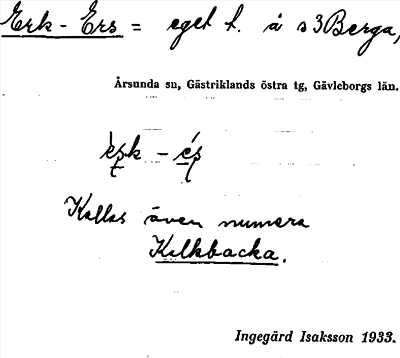 Erk-Ers = eget t. å s3Berga,
Årsunda sn, Gästriklands östra tg, Gävleborgs län.
Kallas även numera
Kalkbacka.
Ingegärd Isaksson 1933.